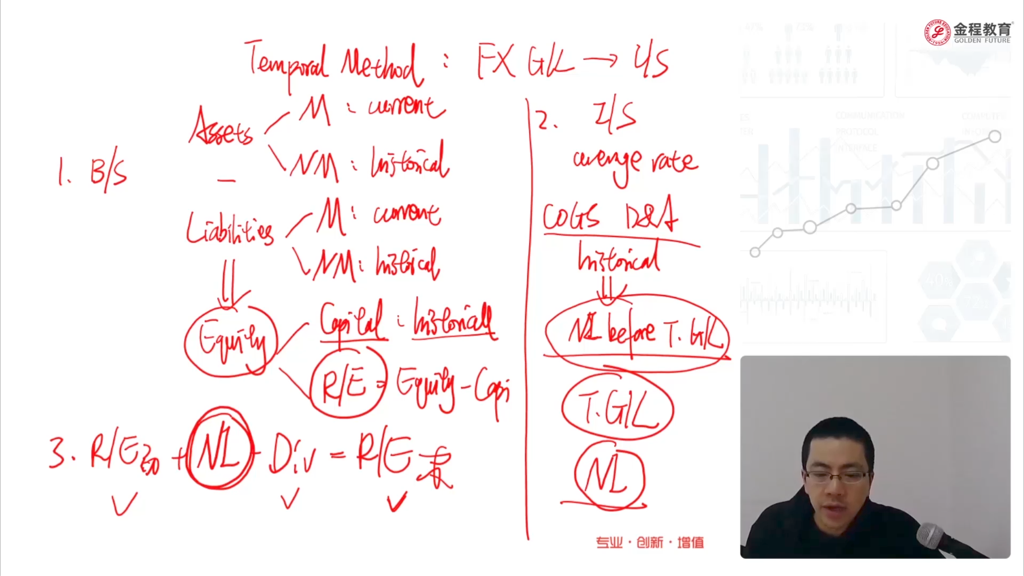 金程教育
GOLDEN FUTURE
Temporal Method : FX G/L → I/S
1. B/S
Assets
M : current
NM : historical
—
Liabilities
M : current
NM : historical
Equity
Capital : historical
R/E = Equity - Capi
3. R/E初 + NI - Div = R/E末
2. I/S
average rate
COGS D&A
historical
NI before T. G/L
T. G/L
NI
专业·创新·增值